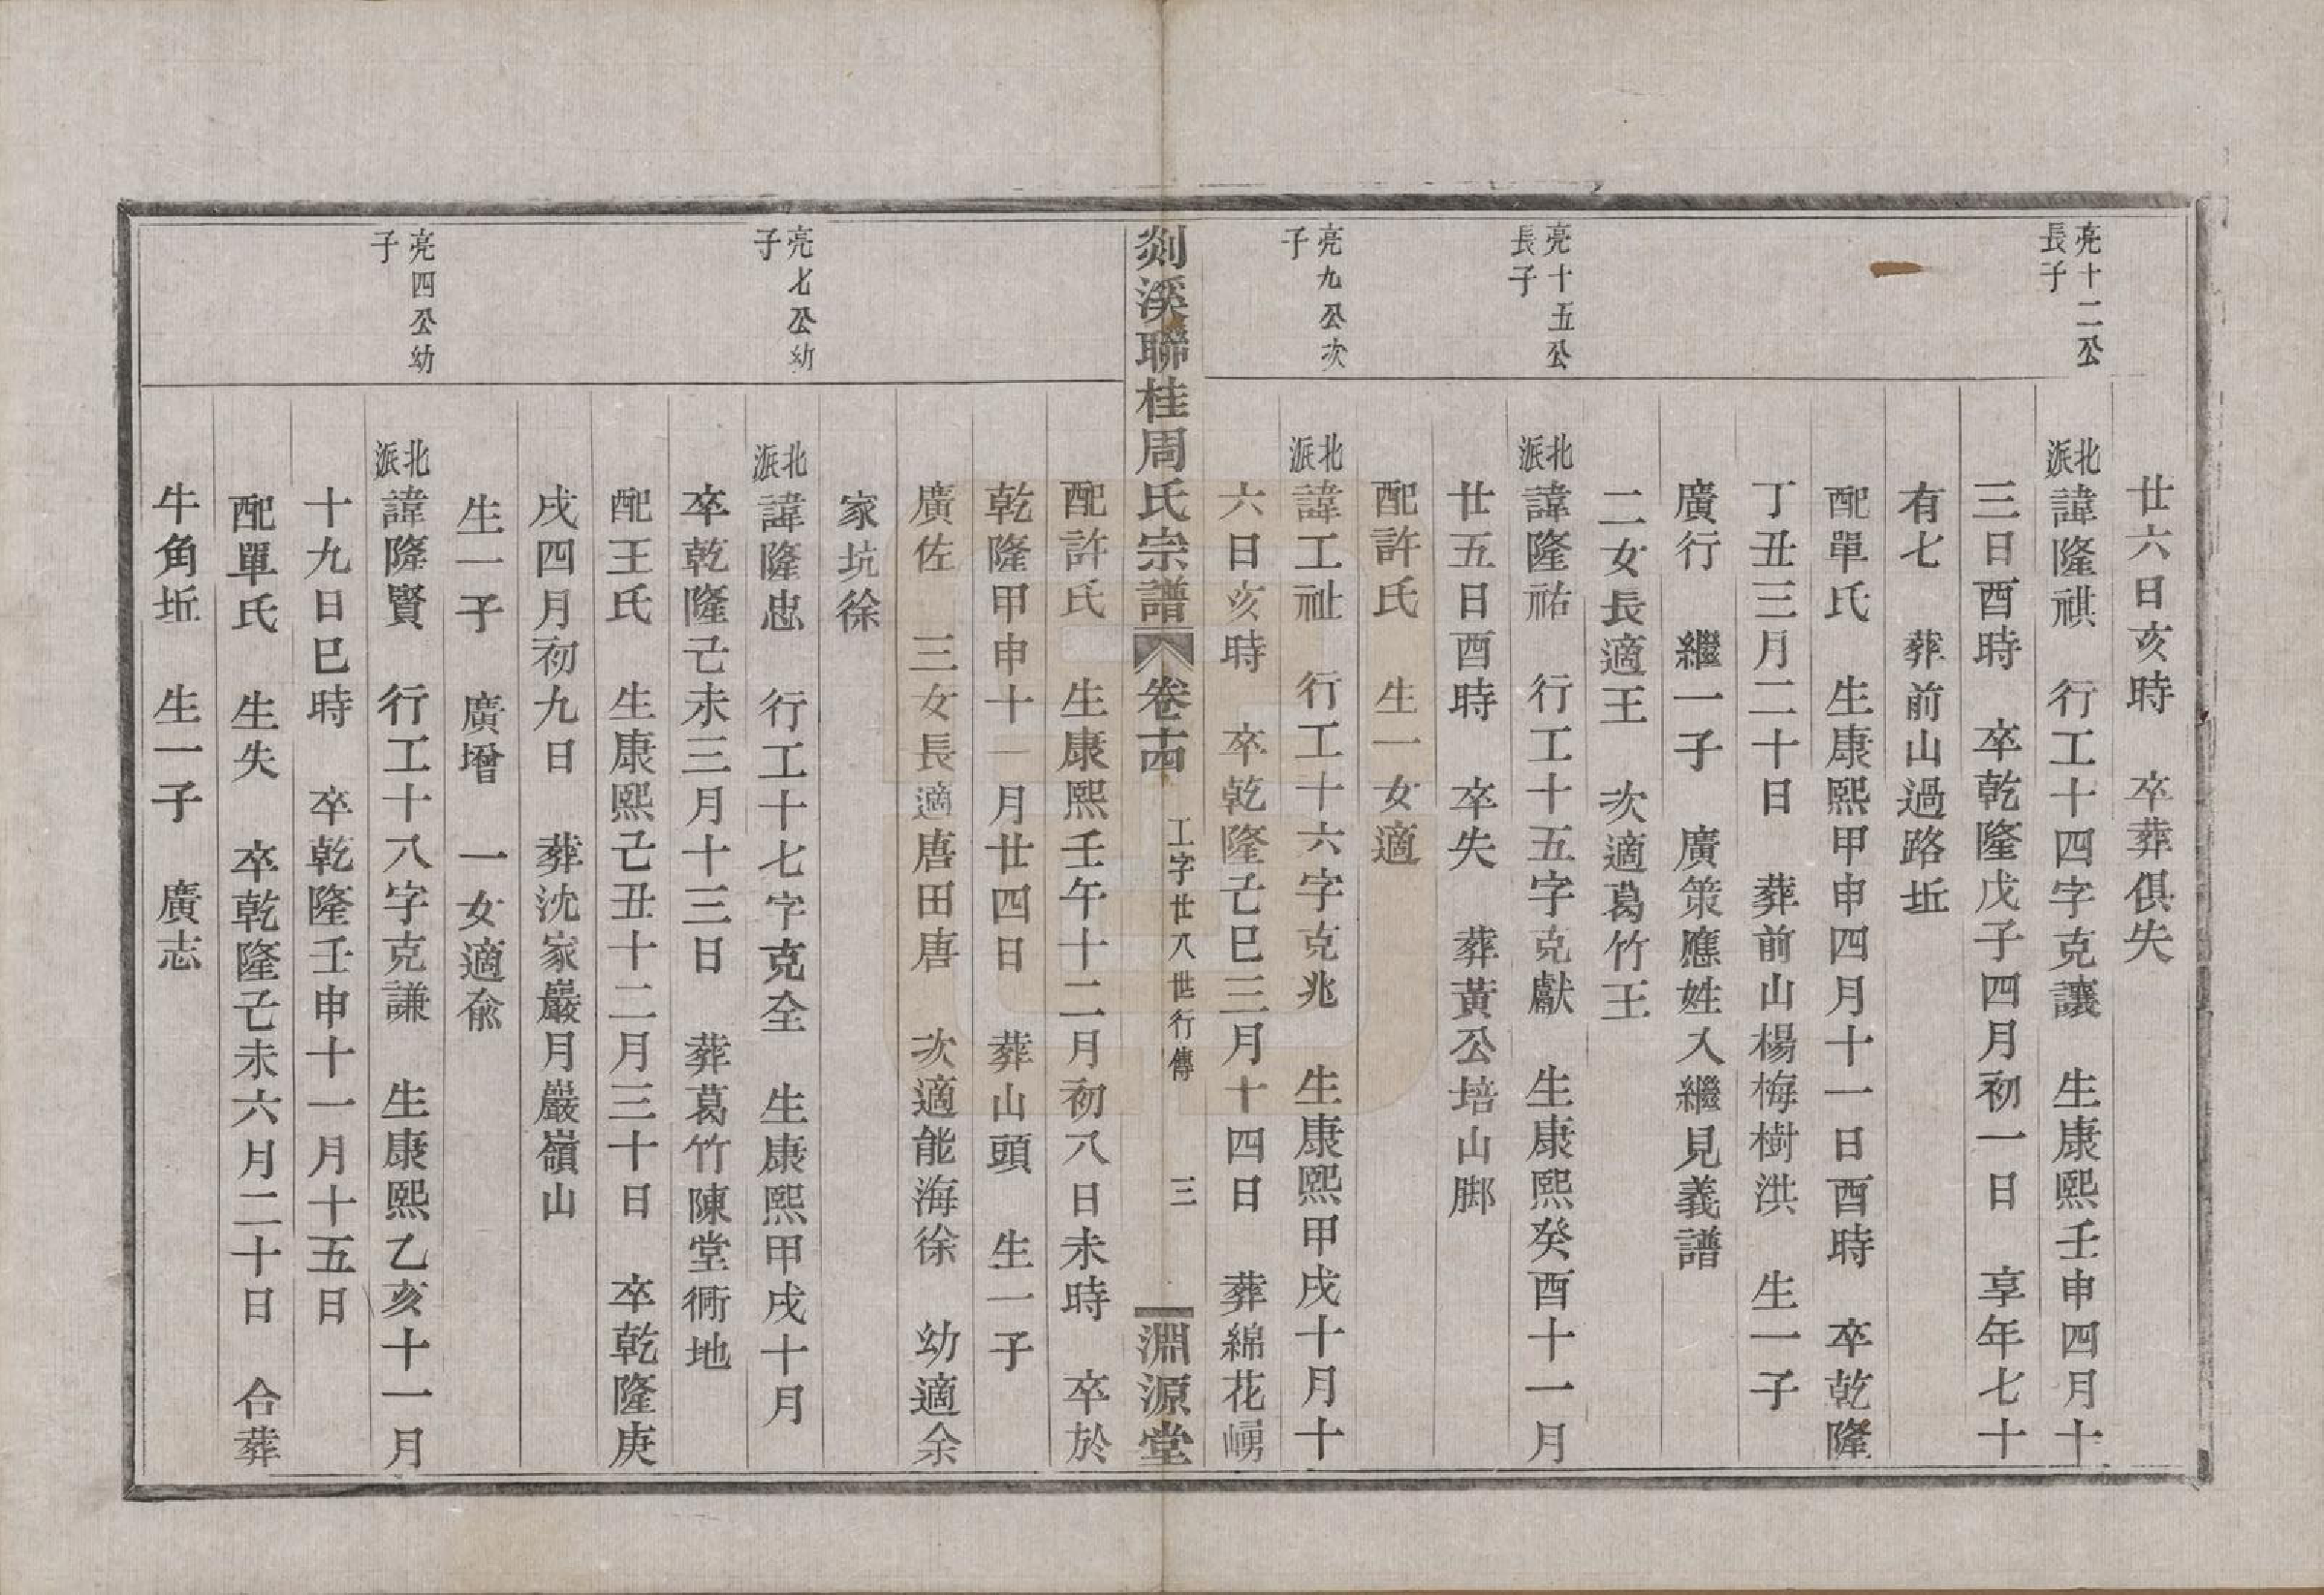 廿六日亥時　卒葬俱失
亮十二公
長子
北派諱隆祺　行工十四字克讓　生康熙壬申四月十
三日酉時　卒乾隆戊子四月初一日　享年七十
有七　葬前山過路坵
配單氏　生康熙甲申四月十一日酉時　卒乾隆
丁丑三月二十日　葬前山楊梅樹洪　生一子
廣行　繼一子　廣策應姓入繼見義譜
二女長適王　次適葛竹王
亮十五公
長子
北派諱隆祐　行工十五字克獻　生康熙癸酉十一月
廿五日酉時　卒失　葬黃公培山脚
配許氏　生一女適
亮九公次
子
北派諱工祉　行工十六字克兆　生康熙甲戌十月十
六日亥時　卒乾隆己巳三月十四日　葬綿花㟾
剡溪聯桂周氏宗譜　卷十四　工字廿八世行傳　三　淵源堂
配許氏　生康熙壬午十二月初八日未時　卒於
乾隆甲申十一月廿四日　葬山頭　生一子
廣佐　三女長適唐田唐　次適能海徐　幼適余
家坑徐
亮七公幼
子
北派諱隆忠　行工十七字克全　生康熙甲戌十月
卒乾隆己未三月十三日　葬葛竹陳堂衕地
配王氏　生康熙己丑十二月三十日　卒乾隆庚
戌四月初九日　葬沈家巖月巖嶺山
生一子　廣增　一女適俞
亮四公幼
子
北派諱隆賢　行工十八字克謙　生康熙乙亥十一月
十九日巳時　卒乾隆壬申十一月十五日
配單氏　生失　卒乾隆己未六月二十日　合葬
牛角坵　生一子　廣志